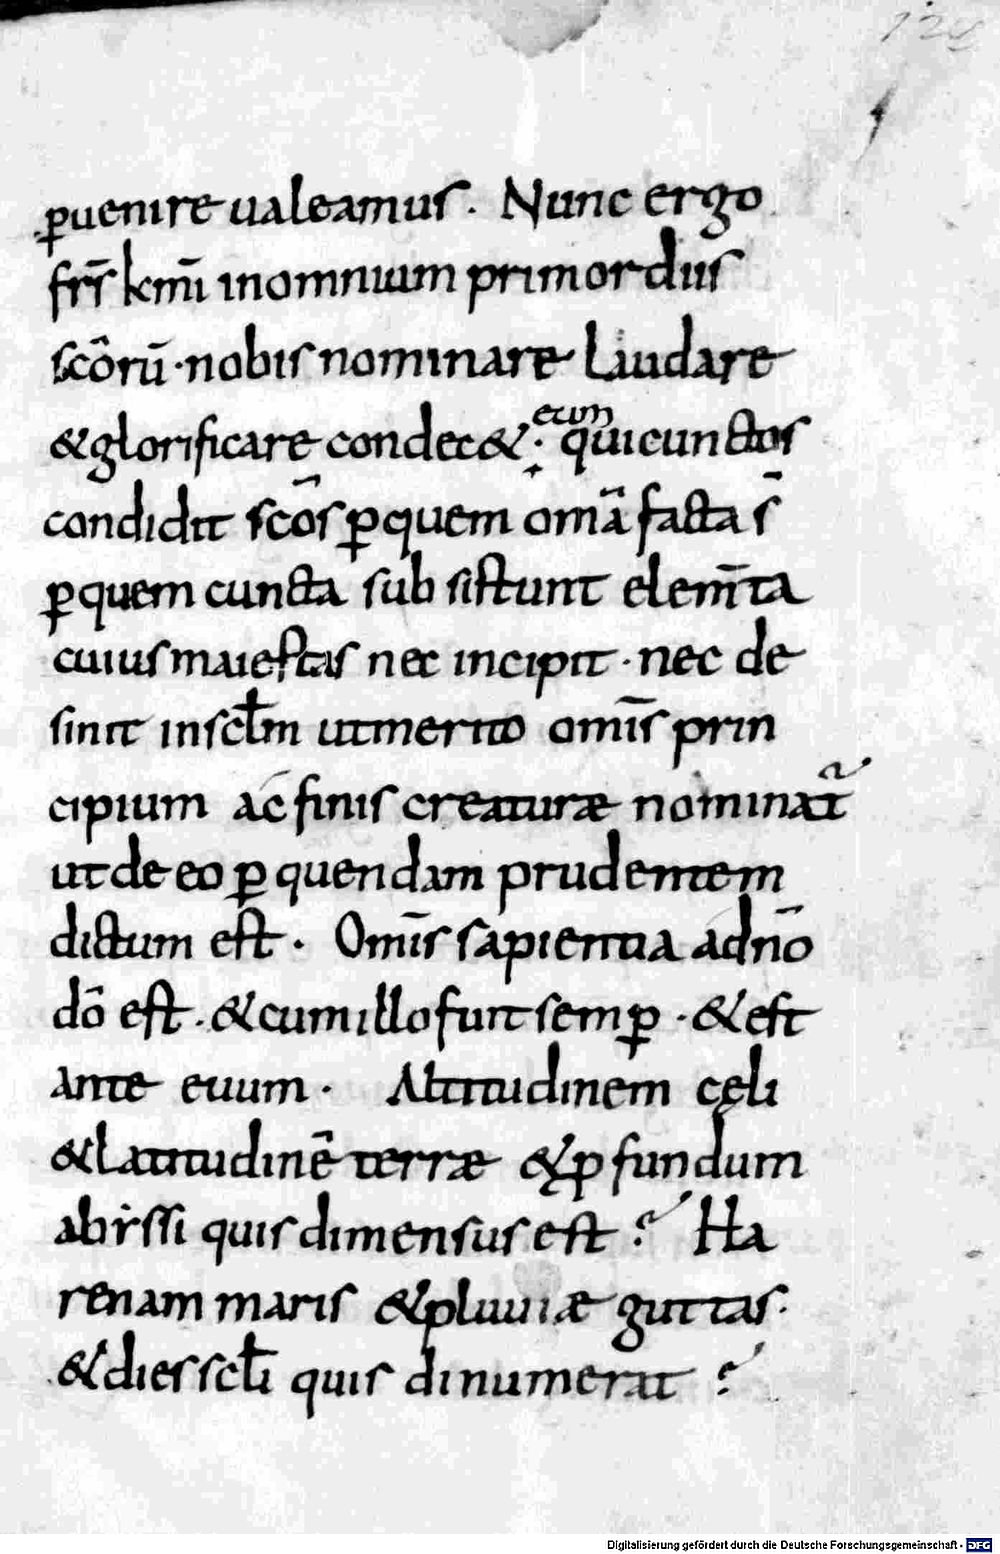 129
ꝑuenire ualeamus. Nunc ergo
fr̄s kmı̄ inomnium primordiis
sc̄orū·nobis nominare Laudare
&glorificare condec&·; eum quicunctos
condidit sc̄os ꝑquem om̄a facta s̄
ꝑquem cuncta sub sistunt elem̄ta
cuius maiestas nec incipit·nec de
sinit inscl̄m utmerito om̄is prin
cipium ac̄ finis creaturæ nominat̃
ut de eo ꝑ quendam prudentem
dictum est. Om̄is sapientia adn̄o
dō est.&cumillo fuit semꝑ·&est
ante euum· Altitudinem cęli
&Latitudinē terræ &ꝓfundum
abissi quis dimensus est? Ha
renam maris &pluuiæ guttas.
&dies scl̄i quis dinumerat?
Digitalisierung gefördert durch die Deutsche Forschungsgemeinschaft - DFG